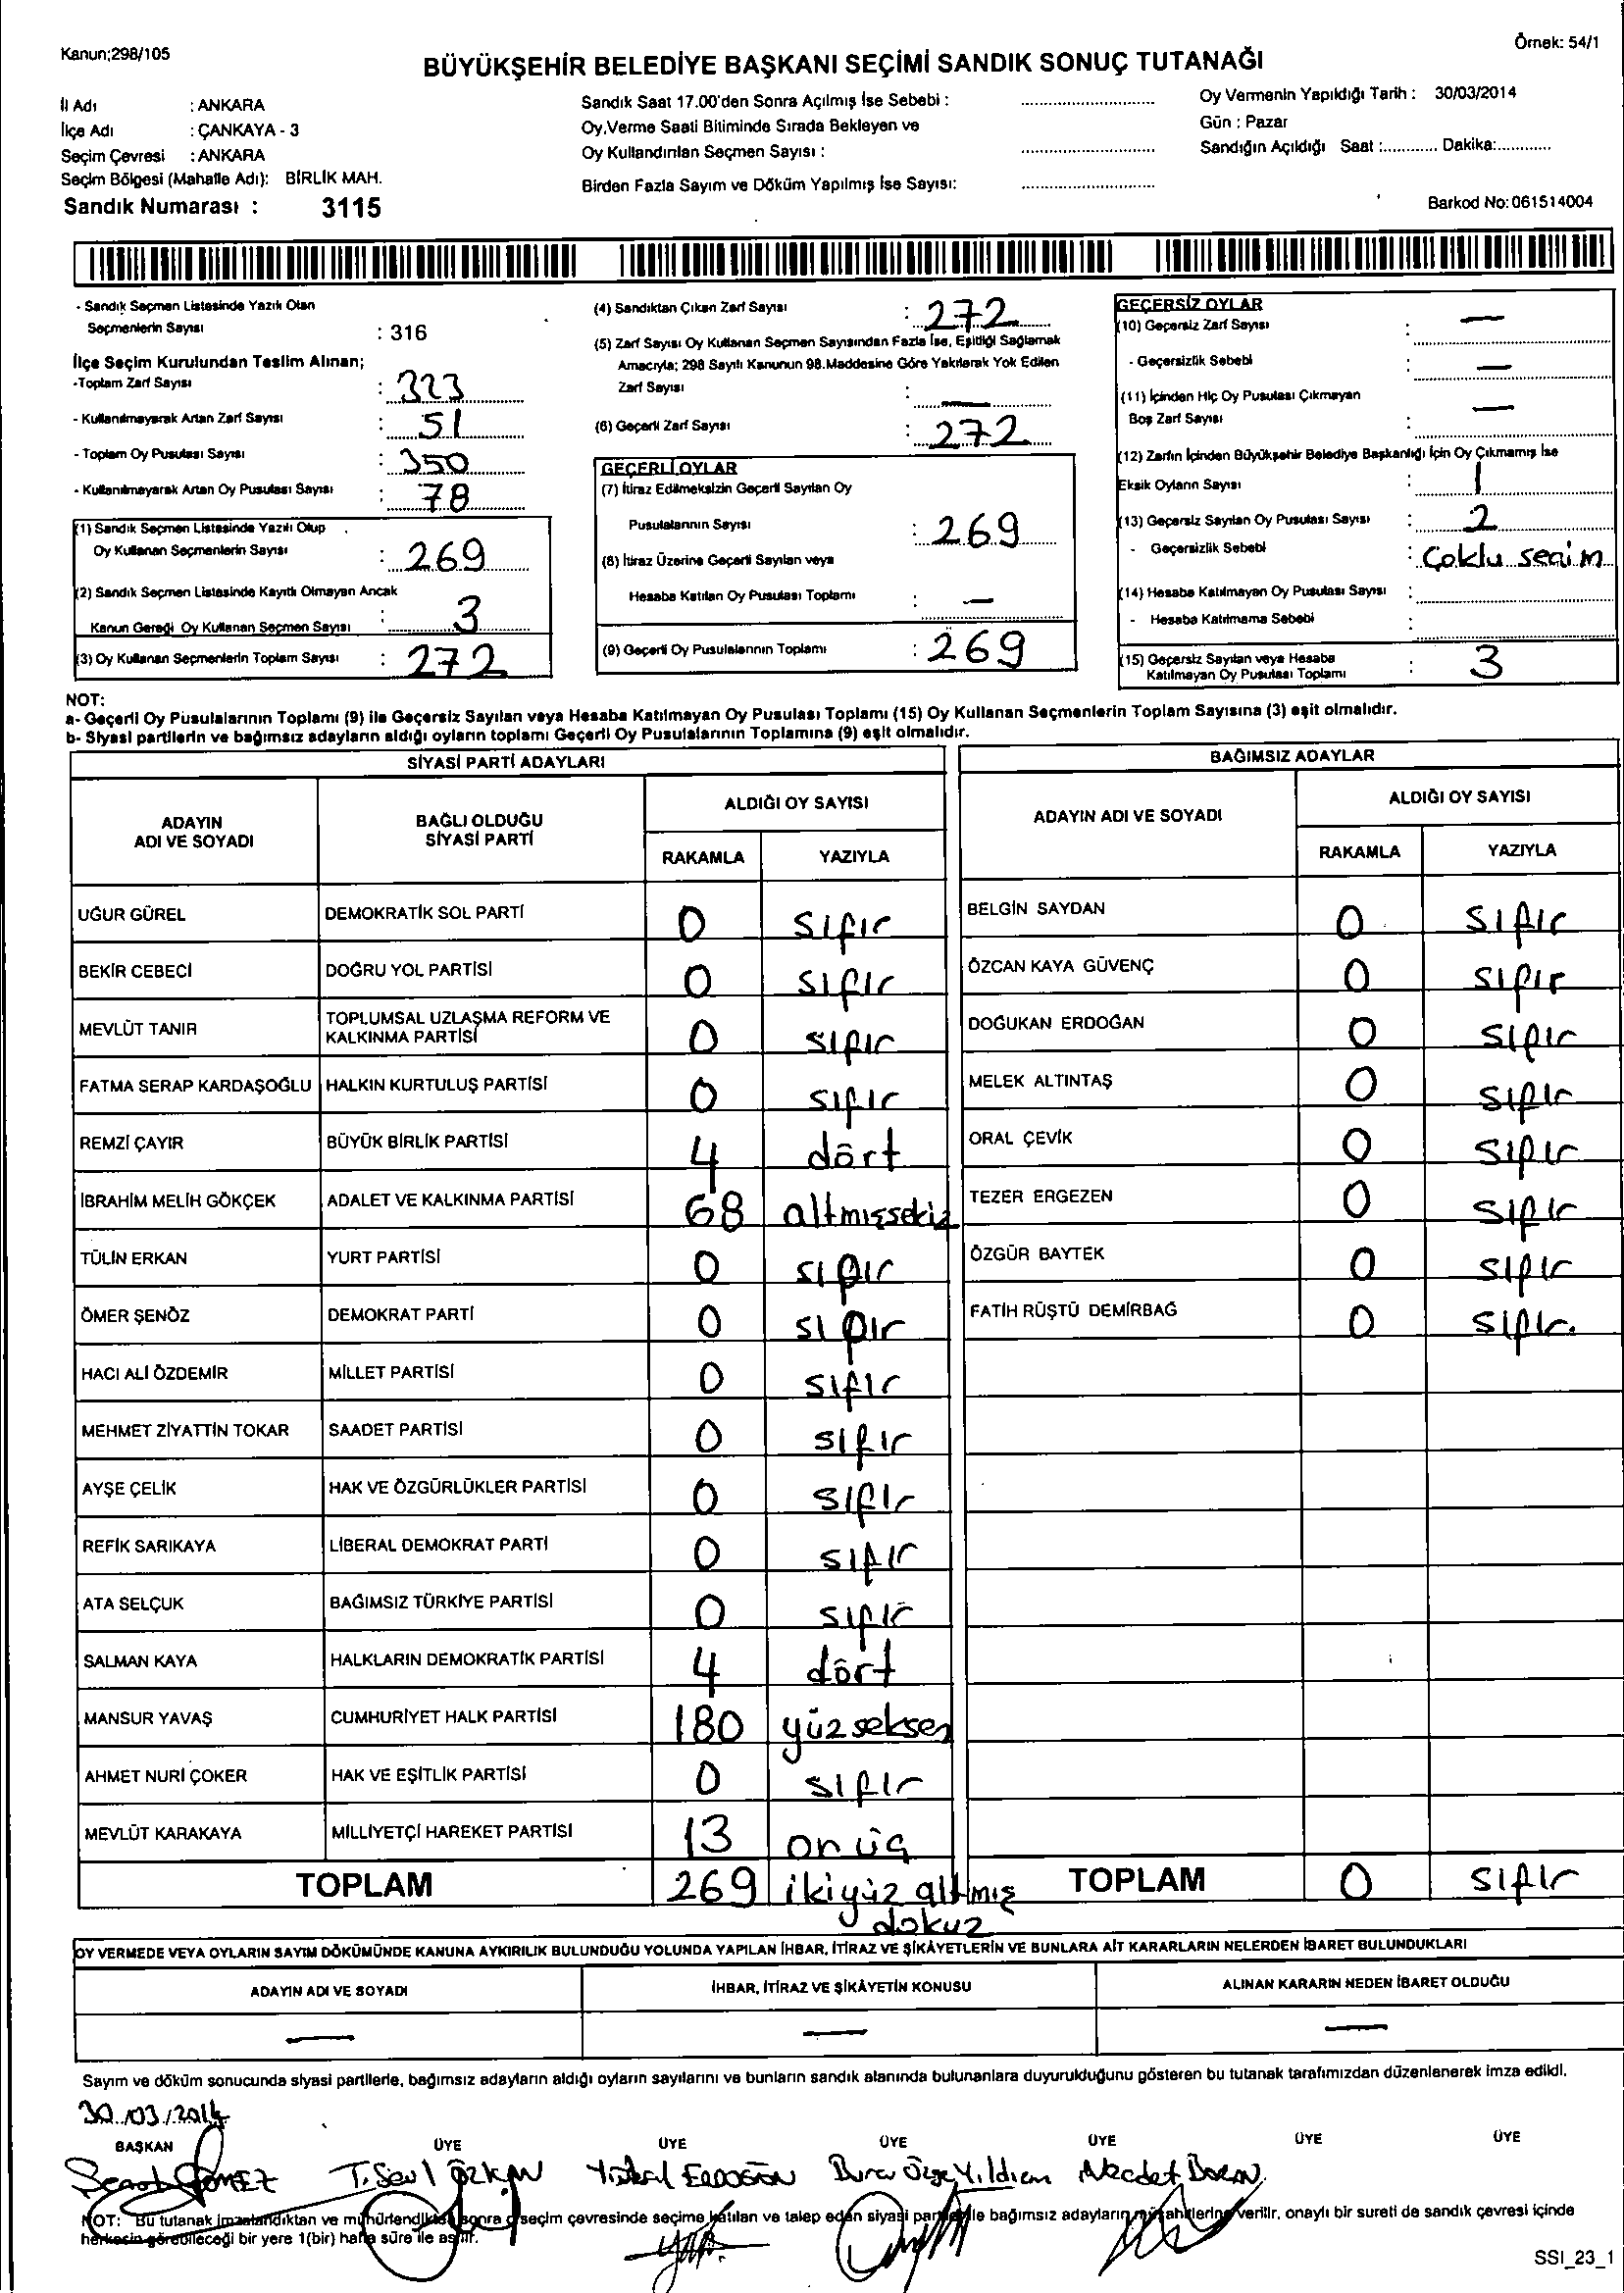 Kanun;298/105
Örnek: 54/1
BÜYÜKŞEHİR BELEDİYE BAŞKANI SEÇİMİ SANDIK SONUÇ TUTANAĞI
İl Adı : ANKARA
İlçe Adı : ÇANKAYA - 3
Seçim Çevresi : ANKARA
Seçim Bölgesi (Mahalle Adı): BİRLİK MAH.
Sandık Numarası : 3115
Sandık Saat 17.00'den Sonra Açılmış İse Sebebi :
Oy,Verme Saati Bitiminde Sırada Bekleyen ve
Oy Kullandırılan Seçmen Sayısı :
Birden Fazla Sayım ve Döküm Yapılmış İse Sayısı:
Oy Vermenin Yapıldığı Tarih : 30/03/2014
Gün : Pazar
Sandığın Açıldığı Saat :............ Dakika:............
Barkod No:061514004
- Sandık Seçmen Listesinde Yazılı Olan
Seçmenlerin Sayısı : 316
İlçe Seçim Kurulundan Teslim Alınan;
-Toplam Zarf Sayısı : 323
- Kullanılmayarak Artan Zarf Sayısı : 51
- Toplam Oy Pusulası Sayısı : 350
- Kullanılmayarak Artan Oy Pusulası Sayısı : 78
(1) Sandık Seçmen Listesinde Yazılı Olup
Oy Kullanan Seçmenlerin Sayısı : 269
(2) Sandık Seçmen Listesinde Kayıtlı Olmayan Ancak
Kanun Gereği Oy Kullanan Seçmen Sayısı : 3
(3) Oy Kullanan Seçmenlerin Toplam Sayısı : 272
(4) Sandıktan Çıkan Zarf Sayısı : 272
(5) Zarf Sayısı Oy Kullanan Seçmen Sayısından Fazla İse, Eşitliği Sağlamak
Amacıyla; 298 Sayılı Kanunun 98.Maddesine Göre Yakılarak Yok Edilen
Zarf Sayısı : —
(6) Geçerli Zarf Sayısı : 272
GEÇERLİ OYLAR
(7) İtiraz Edilmeksizin Geçerli Sayılan Oy
Pusulalarının Sayısı : 269
(8) İtiraz Üzerine Geçerli Sayılan veya
Hesaba Katılan Oy Pusulası Toplamı : —
(9) Geçerli Oy Pusulalarının Toplamı : 269
GEÇERSİZ OYLAR
(10) Geçersiz Zarf Sayısı : —
- Geçersizlik Sebebi : —
(11) İçinden Hiç Oy Pusulası Çıkmayan
Boş Zarf Sayısı : —
(12) Zarfın İçinden Büyükşehir Belediye Başkanlığı İçin Oy Çıkmamış İse
Eksik Oyların Sayısı : 1
(13) Geçersiz Sayılan Oy Pusulası Sayısı : 2
- Geçersizlik Sebebi : Çoklu seçim
(14) Hesaba Katılmayan Oy Pusulası Sayısı :
- Hesaba Katılmama Sebebi :
(15) Geçersiz Sayılan veya Hesaba
Katılmayan Oy Pusulası Toplamı : 3
NOT:
a- Geçerli Oy Pusulalarının Toplamı (9) ile Geçersiz Sayılan veya Hesaba Katılmayan Oy Pusulası Toplamı (15) Oy Kullanan Seçmenlerin Toplam Sayısına (3) eşit olmalıdır.
b- Siyasi partilerin ve bağımsız adayların aldığı oyların toplamı Geçerli Oy Pusulalarının Toplamına (9) eşit olmalıdır.
SİYASİ PARTİ ADAYLARI
ADAYIN ADI VE SOYADI
BAĞLI OLDUĞU SİYASİ PARTİ
ALDIĞI OY SAYISI
RAKAMLA YAZIYLA
UĞUR GÜREL DEMOKRATİK SOL PARTİ 0 sıfır
BEKİR CEBECİ DOĞRU YOL PARTİSİ 0 sıfır
MEVLÜT TANIR TOPLUMSAL UZLAŞMA REFORM VE KALKINMA PARTİSİ 0 sıfır
FATMA SERAP KARDAŞOĞLU HALKIN KURTULUŞ PARTİSİ 0 sıfır
REMZİ ÇAYIR BÜYÜK BİRLİK PARTİSİ 4 dört
İBRAHİM MELİH GÖKÇEK ADALET VE KALKINMA PARTİSİ 68 altmışsekiz
TÜLİN ERKAN YURT PARTİSİ 0 sıfır
ÖMER ŞENÖZ DEMOKRAT PARTİ 0 sıfır
HACI ALİ ÖZDEMİR MİLLET PARTİSİ 0 sıfır
MEHMET ZİYATTİN TOKAR SAADET PARTİSİ 0 sıfır
AYŞE ÇELİK HAK VE ÖZGÜRLÜKLER PARTİSİ 0 sıfır
REFİK SARIKAYA LİBERAL DEMOKRAT PARTİ 0 sıfır
ATA SELÇUK BAĞIMSIZ TÜRKİYE PARTİSİ 0 sıfır
SALMAN KAYA HALKLARIN DEMOKRATİK PARTİSİ 4 dört
MANSUR YAVAŞ CUMHURİYET HALK PARTİSİ 180 yüzseksen
AHMET NURİ ÇOKER HAK VE EŞİTLİK PARTİSİ 0 sıfır
MEVLÜT KARAKAYA MİLLİYETÇİ HAREKET PARTİSİ 13 onüç
TOPLAM 269 ikiyüz altmış dokuz
BAĞIMSIZ ADAYLAR
ADAYIN ADI VE SOYADI
ALDIĞI OY SAYISI
RAKAMLA YAZIYLA
BELGİN SAYDAN 0 sıfır
ÖZCAN KAYA GÜVENÇ 0 sıfır
DOĞUKAN ERDOĞAN 0 sıfır
MELEK ALTINTAŞ 0 sıfır
ORAL ÇEVİK 0 sıfır
TEZER ERGEZEN 0 sıfır
ÖZGÜR BAYTEK 0 sıfır
FATİH RÜŞTÜ DEMİRBAĞ 0 sıfır.
TOPLAM 0 sıfır
OY VERMEDE VEYA OYLARIN SAYIM DÖKÜMÜNDE KANUNA AYKIRILIK BULUNDUĞU YOLUNDA YAPILAN İHBAR, İTİRAZ VE ŞİKÂYETLERİN VE BUNLARA AİT KARARLARIN NELERDEN İBARET BULUNDUKLARI
ADAYIN ADI VE SOYADI İHBAR, İTİRAZ VE ŞİKÂYETİN KONUSU ALINAN KARARIN NEDEN İBARET OLDUĞU
— — —
Sayım ve döküm sonucunda siyasi partilerle, bağımsız adayların aldığı oyların sayılarını ve bunların sandık alanında bulunanlara duyurulduğunu gösteren bu tutanak tarafımızdan düzenlenerek imza edildi.
30./03./2014
BAŞKAN ÜYE ÜYE ÜYE ÜYE ÜYE ÜYE
ÖZKAN ERDOĞAN Burcu Özge Yıldıran Necdet
NOT: Bu tutanak imzalandıktan ve mühürlendikten sonra seçim çevresinde seçime katılan ve talep eden siyasi parti ile bağımsız adayların müşahitlerine verilir, onaylı bir sureti de sandık çevresi içinde
herkesin görebileceği bir yere 1(bir) hafta süre ile asılır.
SSI_23_1